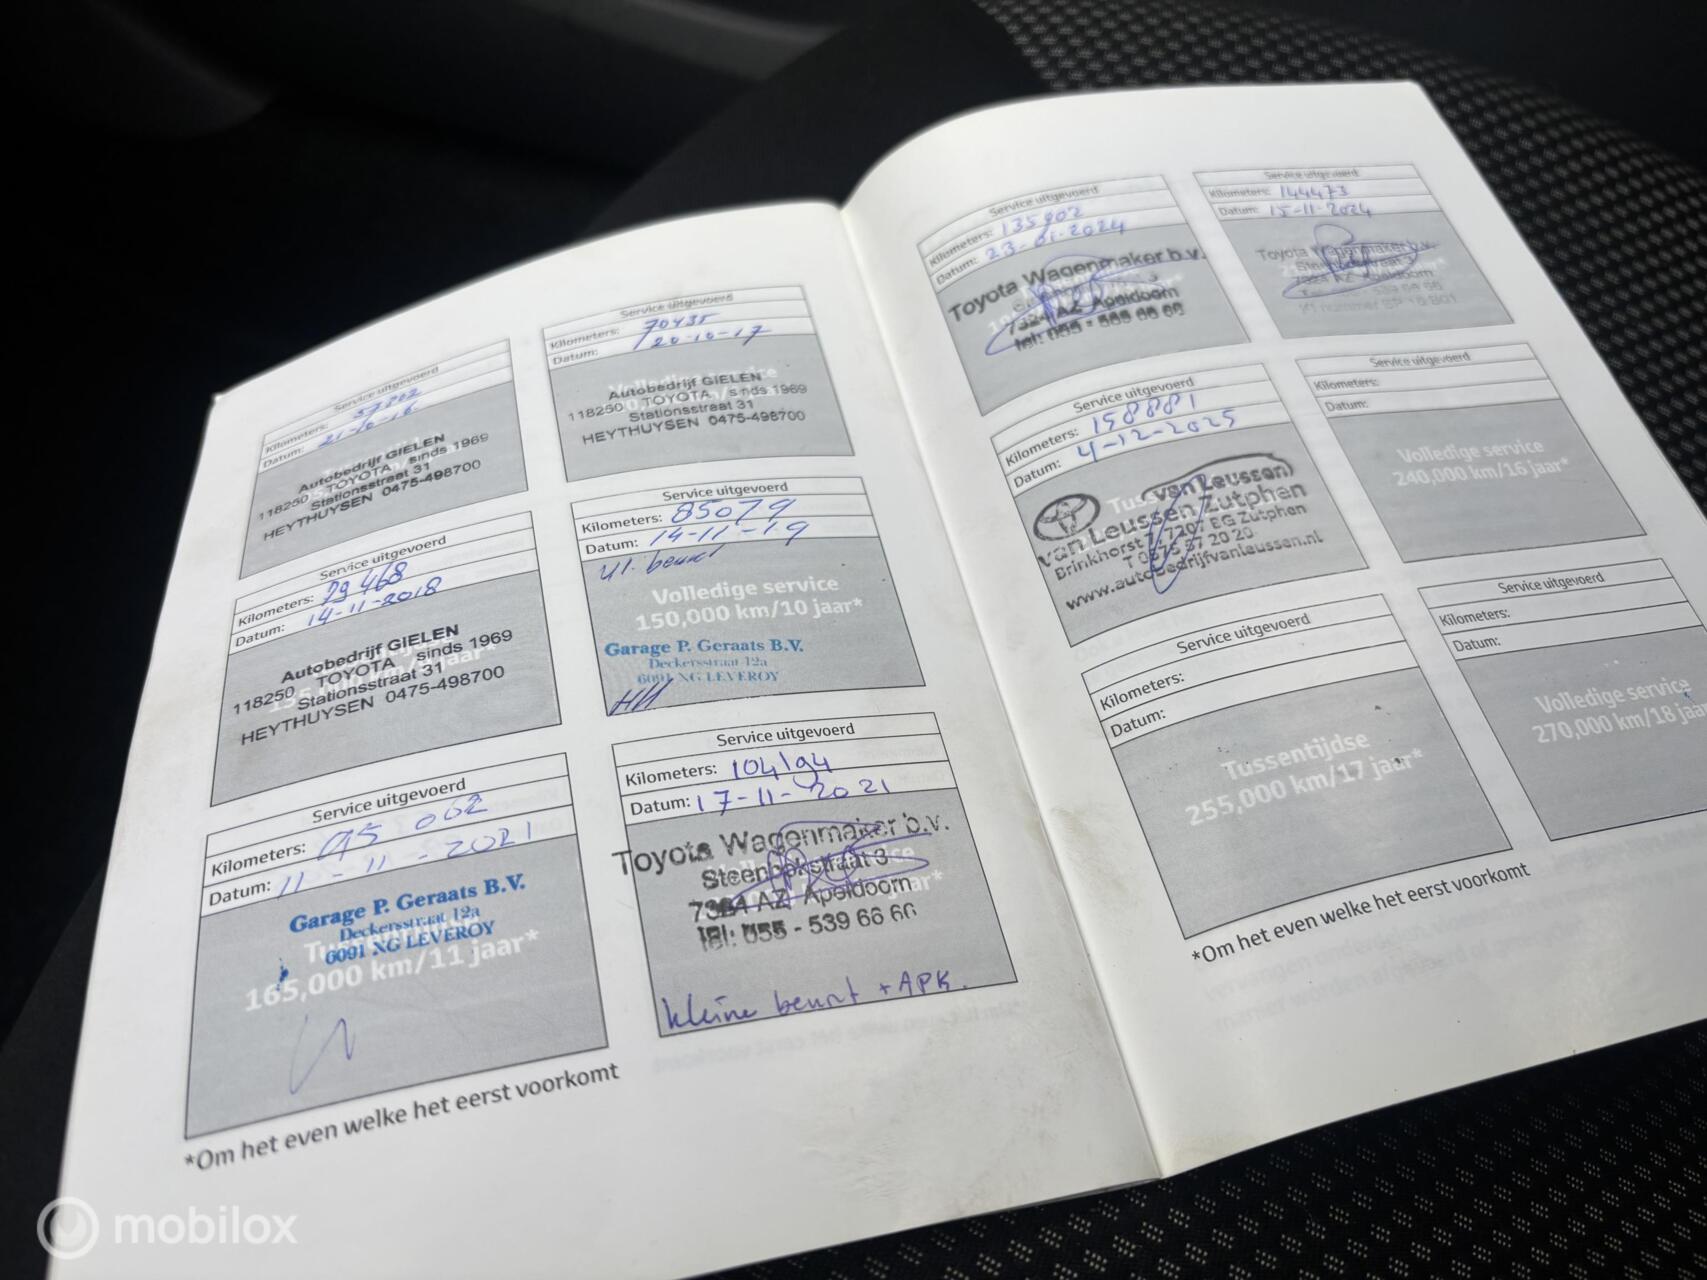 Service uitgevoerd
Kilometers: 57202
Datum: 21-10-16
Autobedrijf GIELEN
118250 TOYOTA sinds 1969
Stationsstraat 31
HEYTHUYSEN 0475-498700
Service uitgevoerd
Kilometers: 70435
Datum: 20-10-17
Volledige service
Autobedrijf GIELEN
118250 TOYOTA sinds 1969
Stationsstraat 31
HEYTHUYSEN 0475-498700
Service uitgevoerd
Kilometers: 79468
Datum: 14-11-2018
Autobedrijf GIELEN
118250 TOYOTA sinds 1969
Stationsstraat 31
HEYTHUYSEN 0475-498700
Service uitgevoerd
Kilometers: 85079
Datum: 14-11-19
Volledige service
150,000 km/10 jaar*
Garage P. Geraats B.V.
Deckersstraat 12a
6091 NG LEVEROY
Service uitgevoerd
Kilometers: 95 062
Datum: 11-11-2021
Garage P. Geraats B.V.
Deckersstraat 12a
6091 NG LEVEROY
165,000 km/11 jaar*
Service uitgevoerd
Kilometers: 104194
Datum: 17-11-2021
Toyota Wagenmaker b.v.
Steenbokstraat 3
7324 AZ Apeldoorn
tel: 055 - 539 66 66
kleine beurt + APK.
*Om het even welke het eerst voorkomt
Service uitgevoerd
Kilometers: 135902
Datum: 23-01-2024
Toyota Wagenmaker b.v.
7324 AZ Apeldoorn
Service uitgevoerd
Kilometers: 144473
Datum: 15-11-2024
Toyota Wagenmaker b.v.
Steenbokstraat 3
7324 AZ Apeldoorn
Service uitgevoerd
Kilometers: 158881
Datum: 4-12-2025
van Leussen
van Leussen Zutphen
Brinkhorst 7, 7207 EG Zutphen
T 0575 57 20 20
www.autobedrijfvanleussen.nl
Service uitgevoerd
Kilometers:
Datum:
Volledige service
240,000 km/16 jaar*
Service uitgevoerd
Kilometers:
Datum:
Tussentijdse
255,000 km/17 jaar*
Service uitgevoerd
Kilometers:
Datum:
Volledige service
270,000 km/18 jaar
*Om het even welke het eerst voorkomt
mobilox